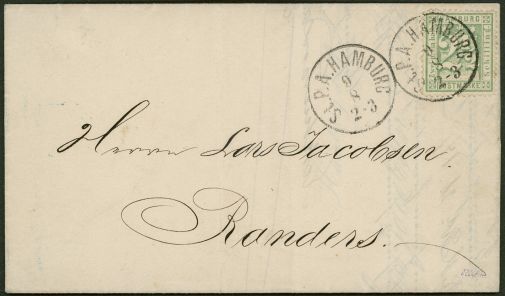 St.P.A.HAMBURG
9
8
2-3
St.P.A.HAMBURG
9
8
2-3
HAMBURG
POSTMARKE
Herrn Lars Jacobsen.
Randers.